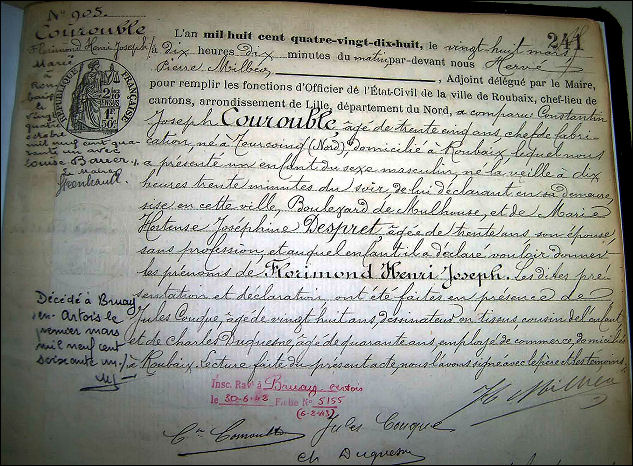 N° 905.
Courouble
Florimond Henri Joseph
Marié
à
le
quatre
octobre
mil neuf cent qua-
rante un avec
Louise Bauer
Le Maire
RÉPUBLIQUE FRANÇAISE
2/10 EN SUS
1F 50c
Décédé à Bruay
en-Artois le
premier mars
mil neuf cent
soixante un./.
241
L'an mil huit cent quatre-vingt-dix-huit, le vingt huit mars
à dix heures dix minutes du matin par-devant nous Hervé
Pierre Milbéo, Adjoint délégué par le Maire,
pour remplir les fonctions d'Officier de l'État-Civil de la ville de Roubaix, chef-lieu de
cantons, arrondissement de Lille, département du Nord, a comparu Constantin
Joseph Courouble, âgé de trente cinq ans, chef de fabri-
cation, né à Tourcoing (Nord), domicilié à Roubaix, lequel nous
a présenté un enfant du sexe masculin, né la veille à dix
heures trente minutes du soir, de lui déclarant en sa demeure,
sise en cette ville, Boulevard de Mulhouse, et de Marie
Hortense Joséphine Despret, âgée de trente ans son épouse,
sans profession, et auquel enfant il a déclaré vouloir donner
les prénoms de Florimond Henri Joseph. Les dites pré-
sentation et déclaration ont été faites en présence de
Jules Couque, âgé de vingt huit ans, dessinateur en tissus, cousin de l'enfant,
et de Charles Duquesne, âgé de quarante ans, employé de commerce, domiciliés
à Roubaix. Lecture faite du présent acte, nous l'avons signé avec le père et les témoins.
Insc. Rav. à Bruay-en-Artois
le 30-6-43 Fiche N° 5155
(6-2-43)
Jules Couque
Ch Duquesne